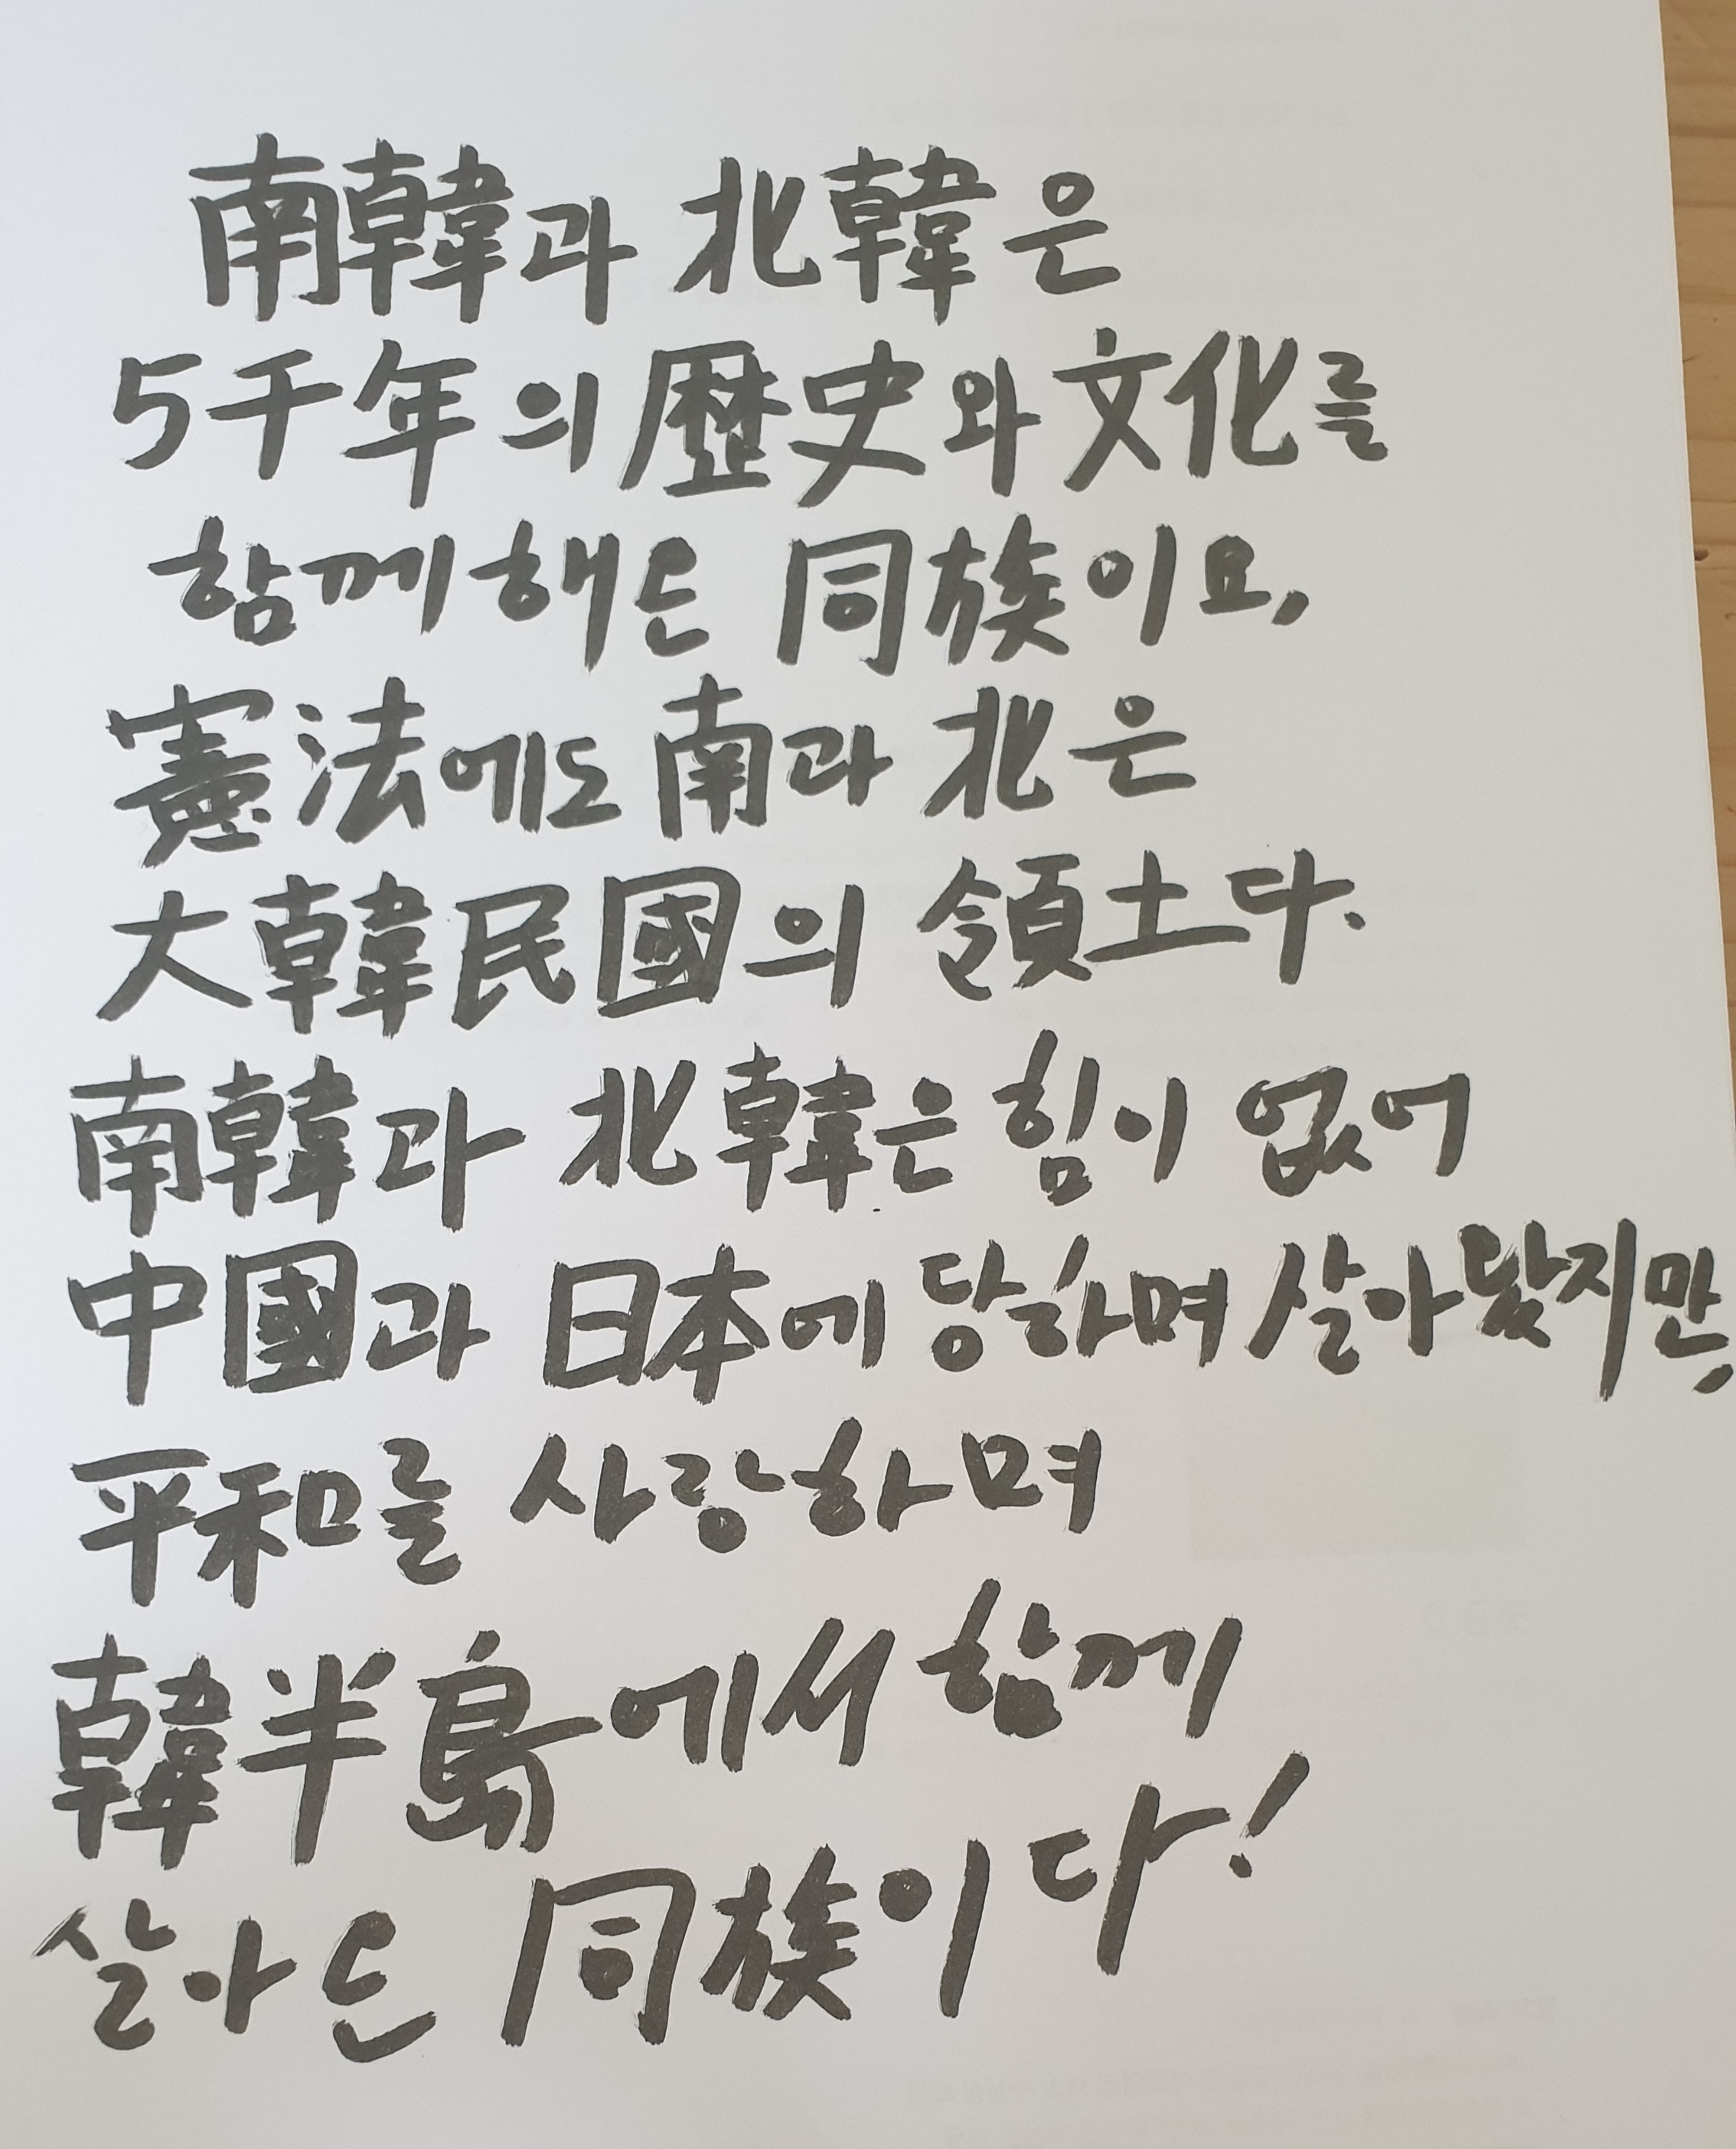 南韓과 北韓은
5千年의 歷史와 文化를
함께해온 同族이요,
憲法에도 南과 北은
大韓民國의 領土다.
南韓과 北韓은 힘이 없어
中國과 日本에 당하며 살아왔지만,
平和를 사랑하며
韓半島에서 함께
살아온 同族이다!